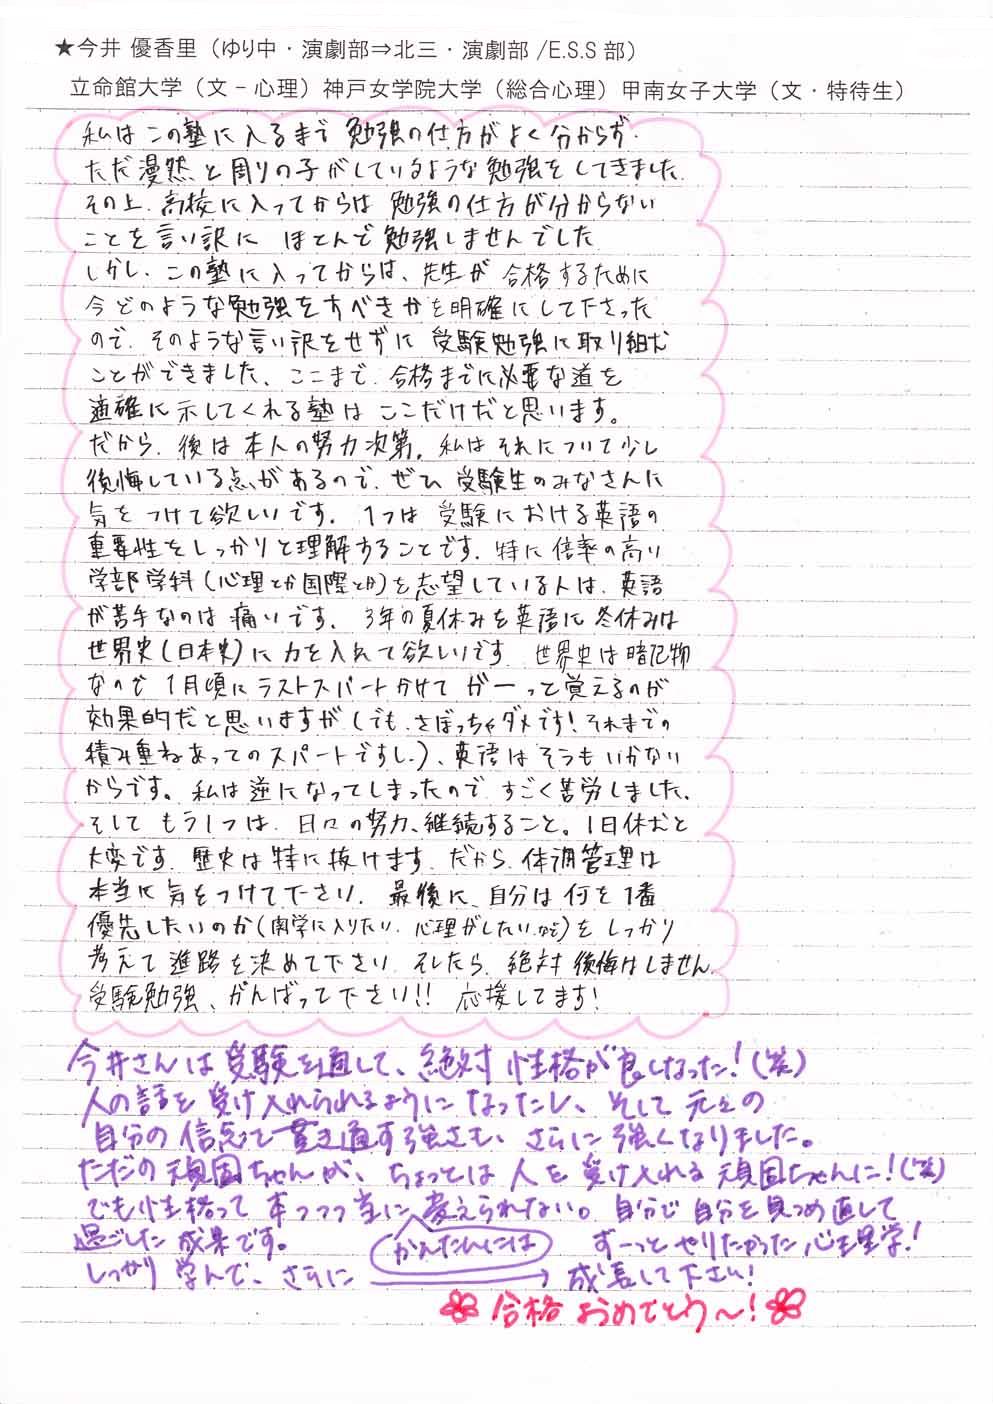 ★今井 優香里（ゆり中・演劇部⇒北三・演劇部/E.S.S部）
立命館大学（文－心理）神戸女学院大学（総合心理）甲南女子大学（文・特待生）
私はこの塾に入るまで 勉強の仕方がよく分からず、
ただ漫然と周りの子がしているような勉強をしてきました。
その上、高校に入ってからは 勉強の仕方が分からない
ことを言い訳に ほとんど勉強しませんでした
しかし、この塾に入ってからは、先生が 合格するために
今どのような勉強をすべきかを明確にして下さった
ので、そのような言い訳をせずに 受験勉強に取り組む
ことができました、ここまで、合格までに必要な道を
適確に示してくれる塾は ここだけだと思います。
だから、後は本人の努力次第。私は それについて少し
後悔している点があるので、ぜひ 受験生のみなさんに
気をつけて欲しいです。1つは 受験における英語の
重要性をしっかりと理解することです。特に倍率の高い
学部学科(心理とか国際とか)を志望している人は、英語
が苦手なのは痛いです。3年の夏休みを英語に 冬休みは
世界史(日本史)に力を入れて欲しいです 世界史は暗記物
なので 1月頃にラストスパートかけて がーっと覚えるのが
効果的だと思いますが(でも、さぼっちゃダメです!それまでの
積み重ねあってのスパートですし。)、英語はそうもいかない
からです。私は逆になってしまったので すごく苦労しました。
そして もう1つは、日々の努力、継続すること。1日休むと
大変です。歴史は特に抜けます。だから、体調管理は
本当に気をつけて下さい。最後に、自分は何を1番
優先したいのか(関学に入りたい、心理がしたい、など)を しっかり
考えて進路を決めて下さい。そしたら、絶対後悔はしません。
受験勉強、がんばって下さい!! 応援してます!
今井さんは受験を通して、絶対 性格が良くなった!(笑)
人の話を受け入れられるようになったし、そして元々の
自分の信念って貫き通す強さも、さらに強くなりました。
ただの頑固ちゃんが、ちょっとは人を受け入れる頑固ちゃんに!(笑)
でも性格って 本っっっ当に変えられない。自分で自分を見つめ直して
過ごした成果です。 かんたんには ずーっとやりたかった心理学!
しっかり学んで、さらに 成長して下さい!
合格おめでとう〜!